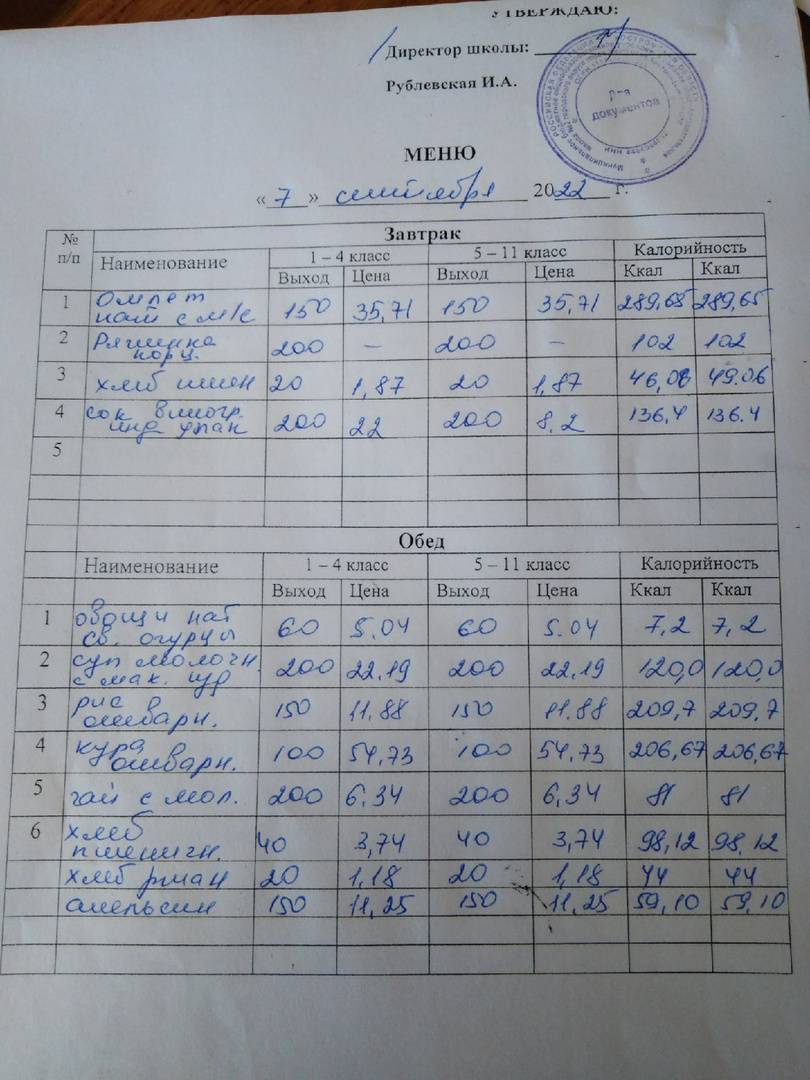 УТВЕРЖДАЮ:
Директор школы:
Рублевская И.А.
р-я
документов
МЕНЮ
« 7 » сентября 2022 г.
№ п/п Завтрак
Наименование 1 – 4 класс 5 – 11 класс Калорийность
Выход Цена Выход Цена Ккал Ккал
1 Омлет
нат с м/с 150 35,71 150 35,71 289,65 289,65
2 Ряженка
порц. 200 – 200 – 102 102
3 хлеб пшен 20 1,87 20 1,87 46,06 49.06
4 сок виногр.
инд упак 200 22 200 8.2 136,4 136.4
5
Обед
Наименование 1 – 4 класс 5 – 11 класс Калорийность
Выход Цена Выход Цена Ккал Ккал
1 овощи нат
св. огурцы 60 5.04 60 5.04 7,2 7,2
2 суп молочн.
с мак. изд 200 22,19 200 22.19 120,0 120,0
3 рис о
отварн. 150 11.88 150 11.88 209,7 209.7
4 кура о
отварн. 100 54,73 100 54,73 206,67 206,67
5 чай с мол. 200 6.34 200 6,34 81 81
6 хлеб
пшеничн. 40 3,74 40 3,74 98,12 98.12
хлеб ржан 20 1,18 20 1,18 44 44
апельсин 150 11,25 150 11,25 59,10 59.10